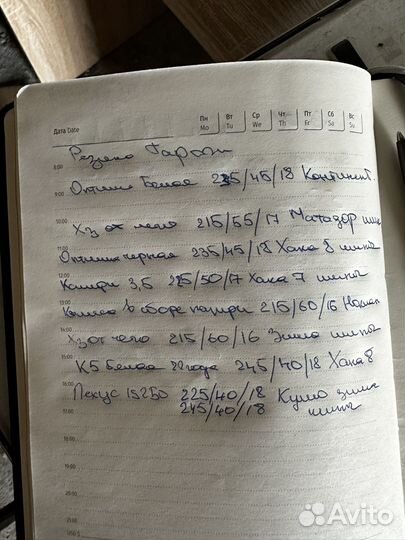 Пн Вт Ср Чт Пт Сб Вс
Дата Date Mo Tu We Th Fr Sa Su
8:00 Резина Гараж
9:00 Оптима Белая 235/45/18 Континент
10:00
Хз от чего 215/55/17 Матадор шип
11:00 Оптима черная 235/45/18 Хака 8 шипы
12:00 Камри 3,5 215/50/17 Хака 7 шипы
13:00 Колеса в сборе камри 215/60/16 Нокиан
14:00 Хз от чего 215/60/16 Зима шипы
15:00 К5 Белая 22 года 245/40/18 Хака 8
16:00 Лексус IS250 225/40/18 Кумо зима
17:00 245/40/18 шипы
18:00
19:00
20:00
21:00
Avito